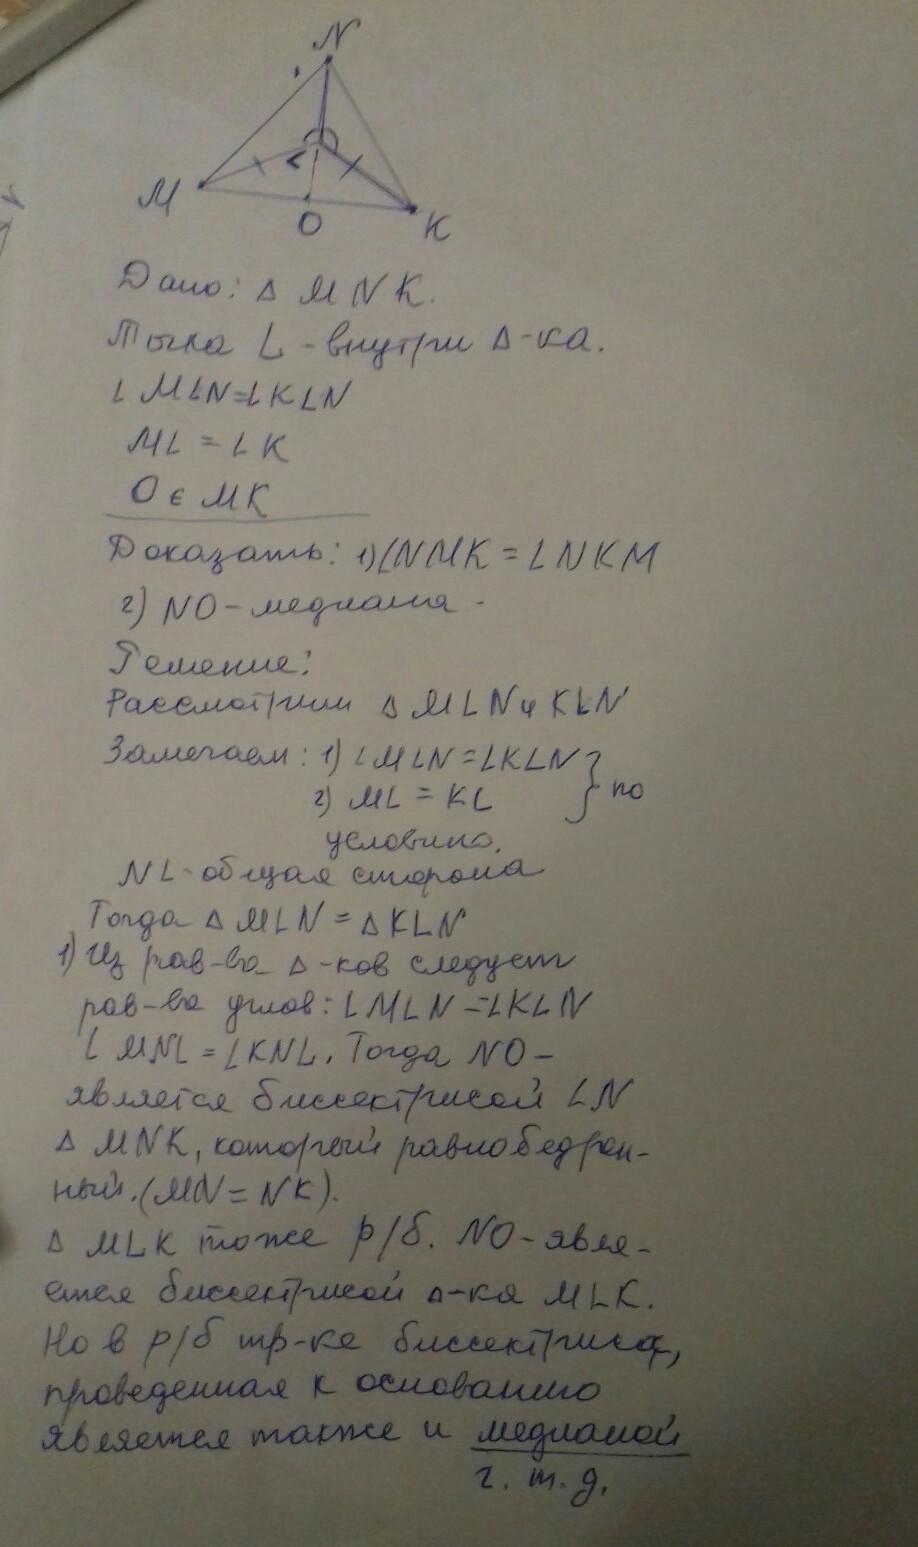 N
M
L
O
K
Дано: Δ MNK.
Точка L - внутри Δ-ка.
∠MLN=∠KLN
ML = LK
O ∈ MK
Доказать: 1)∠NMK = ∠NKM
2) NO - медиана.
Решение:
Рассмотрим Δ MLN и KLN
Замечаем: 1) ∠MLN=∠KLN } по
2) ML = KL
условию.
NL-общая сторона
Тогда Δ MLN = Δ KLN
1) Из рав-ва Δ-ков следует
рав-во углов: ∠MLN =∠KLN
∠MNL = ∠KNL. Тогда NO -
является биссектрисой ∠N
Δ MNK, который равнобедрен-
ный. (MN = NK).
Δ MLK тоже р/б. NO - явля-
ется биссектрисой Δ-ка MLK.
Но в р/б тр-ке биссектриса,
проведенная к основанию
является также и медианой
ч. т. д.